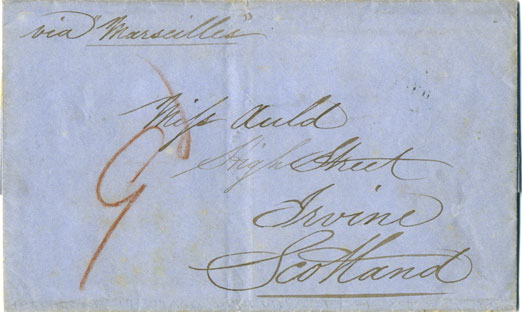 via "Marseilles"
Miss Auld
High Street
Irvine
Scotland
9